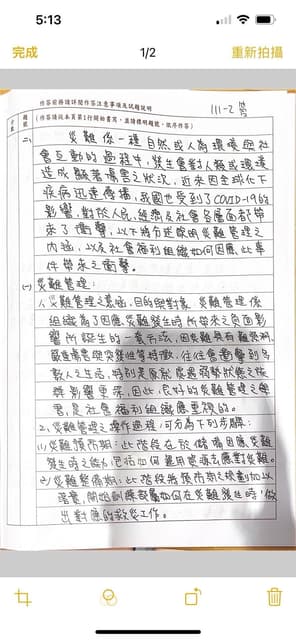 5:13
完成
1/2
重新拍攝
作答前務請詳閱作答注意事項及試題說明
111-2
(作答請從本頁第1行開始書寫,並請標明題號,依序作答)
題號
二、
災難係一種自然或人為環境與社
會互動的過程中,發生會對人類或環境
造成顯著傷害之狀況,近來因全球化下
疾病迅速傳播,我國也受到了COVID-19的
影響,對於人民、經濟及社會各層面都帶
來了衝擊,以下將分述說明災難管理之
內涵,以及社會福利組織如何因應此事
件帶來之衝擊。
(一)災難管理:
1.災難管理之意涵、目的與對象:災難管理係
組織為了因應災難發生時所帶來之負面影
響所誕生的一套方式,因災難具有難預測、
嚴重傷害與突發性等特徵,往往會衝擊到多
數人之生活,特別是原就處遇弱勢狀態之族
群影響更深,因此,良好的災難管理之學
習,是社會福利組織應重視的。
2.災難管理之操作過程,可分為下列步驟:
(1)災難預防期:此階段在於儲備因應災難
發生時之能力,包括如何運用資源去應對災難。
(2)災難整備期:此階段將預防期之規劃加以
落實,開始訓練部屬如何在災難發生時,做
出對應的救災工作。